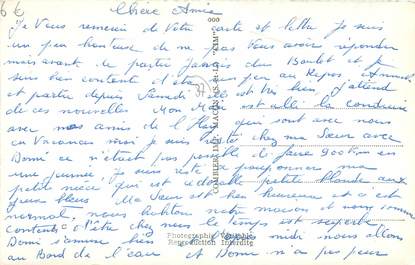 66
Chère Amie
Je Vous remercie de Votre carte et lettre Je suis
un peu honteuse de ne pas Vous avoir répondu
mais avant le partir j'avais du Boulot et je
suis bien contente d'être un peu au Repos, Annick
est partie depuis Samedi elle est très bien j'attend
de ces nouvelles Mon Mari est allé la conduire
avec nos amis de l' qui sont avec nous
en Vacances moi je suis resté chez ma Sœur avec
Domi ce n'était pas possible de faire 900 Km en
une journée Je suis resté ma
petite nièce qui est adorable petite blonde aux
yeux bleus Ma Sœur est bien heureuse et c'est
normal, nous habitons notre maison et nous sommes
contents d'être chez nous le temps est superbe
Domi s'amuse bien midi nous allons
au Bord de l'eau et Domi n'a pas peur
37
COMBIER IMP. MACON (S.-&-L.) "CIM"
000
Photographie Véritable
Reproduction Interdite